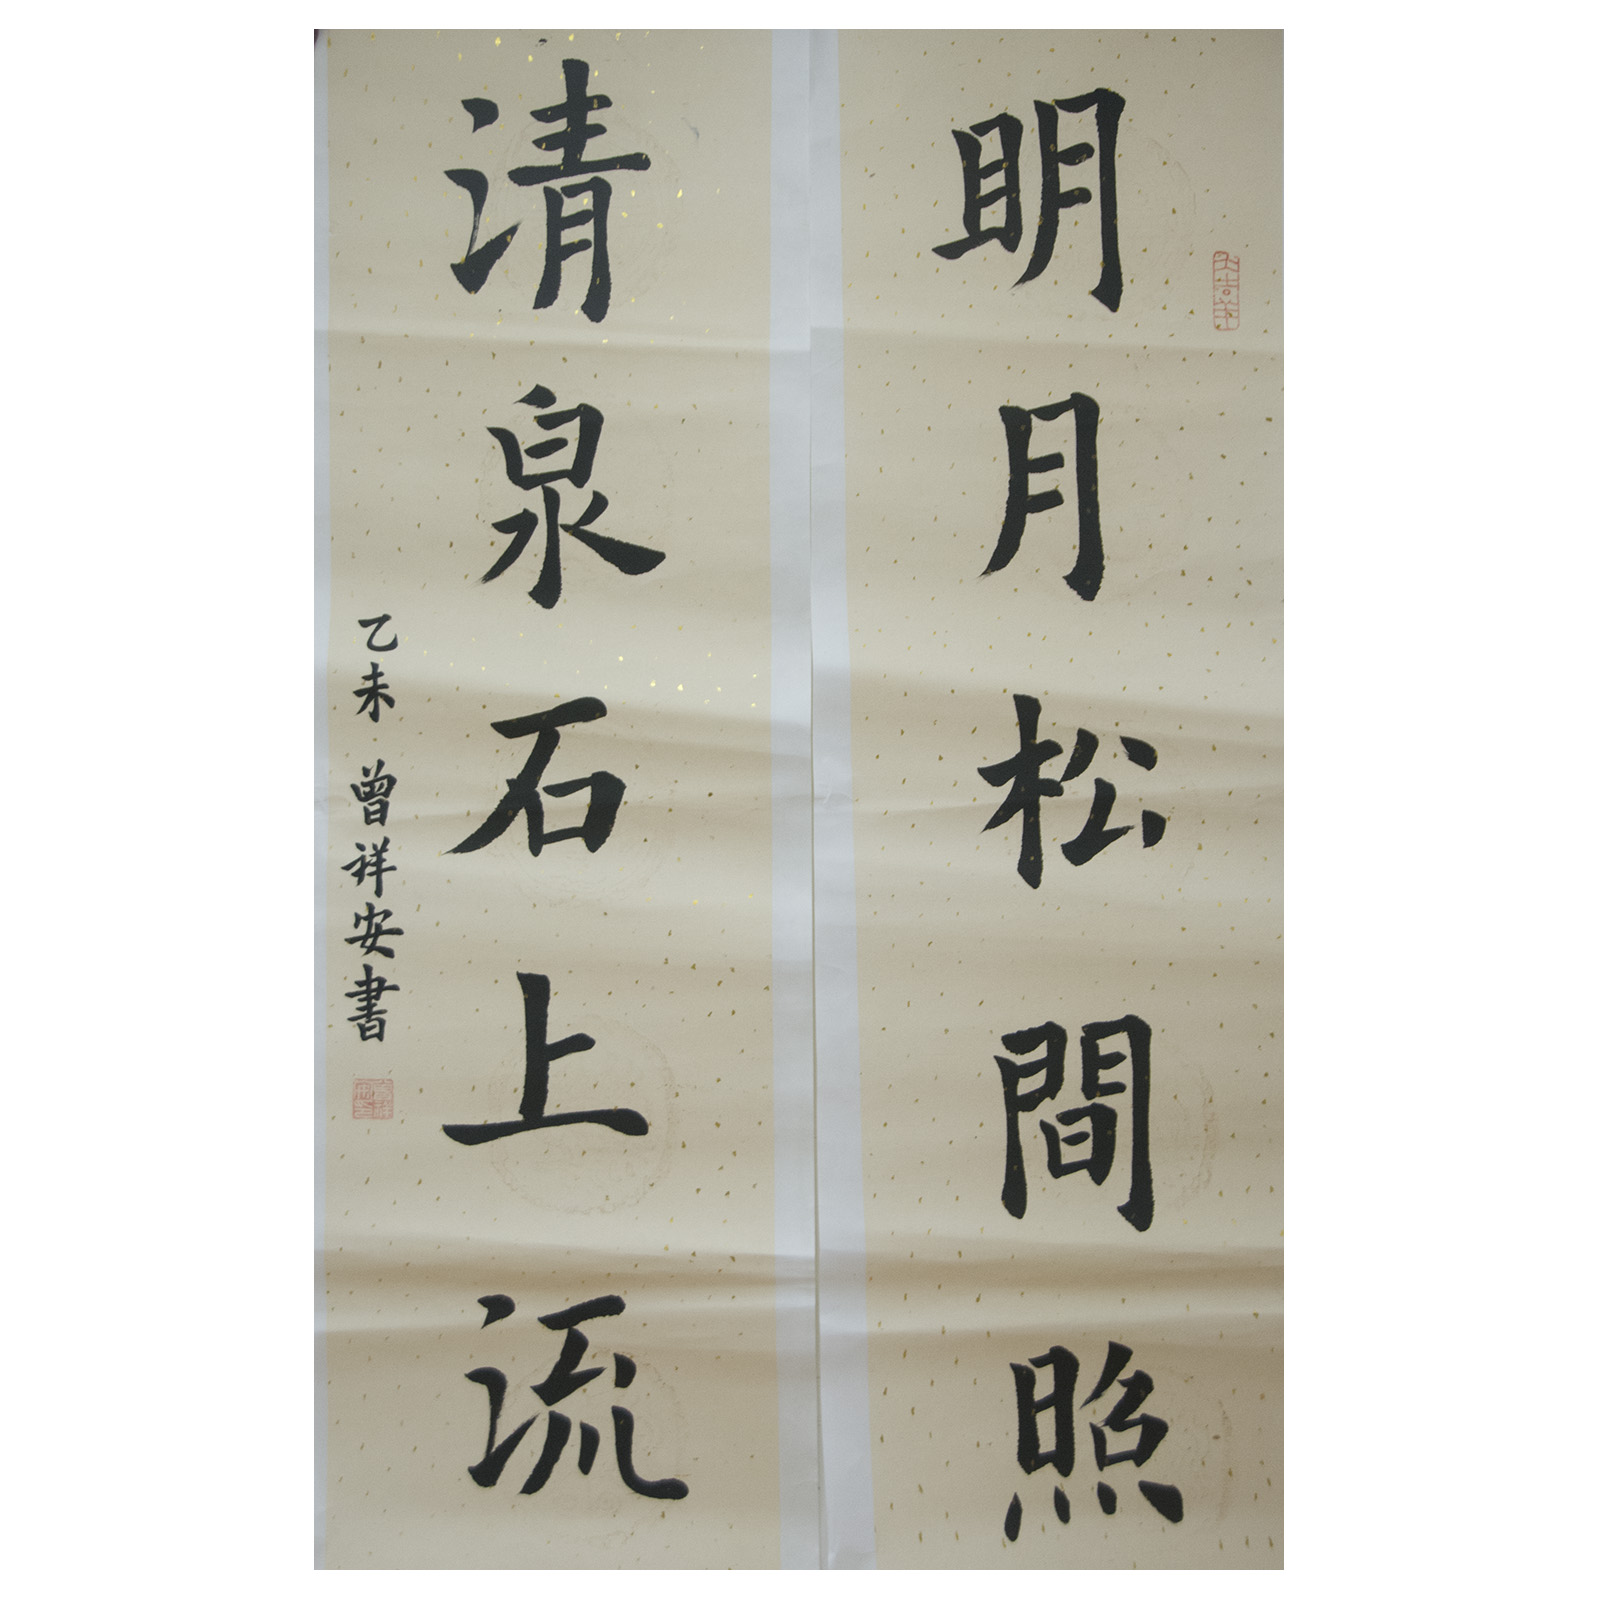 明月松間照
清泉石上流
乙未 曾祥安書